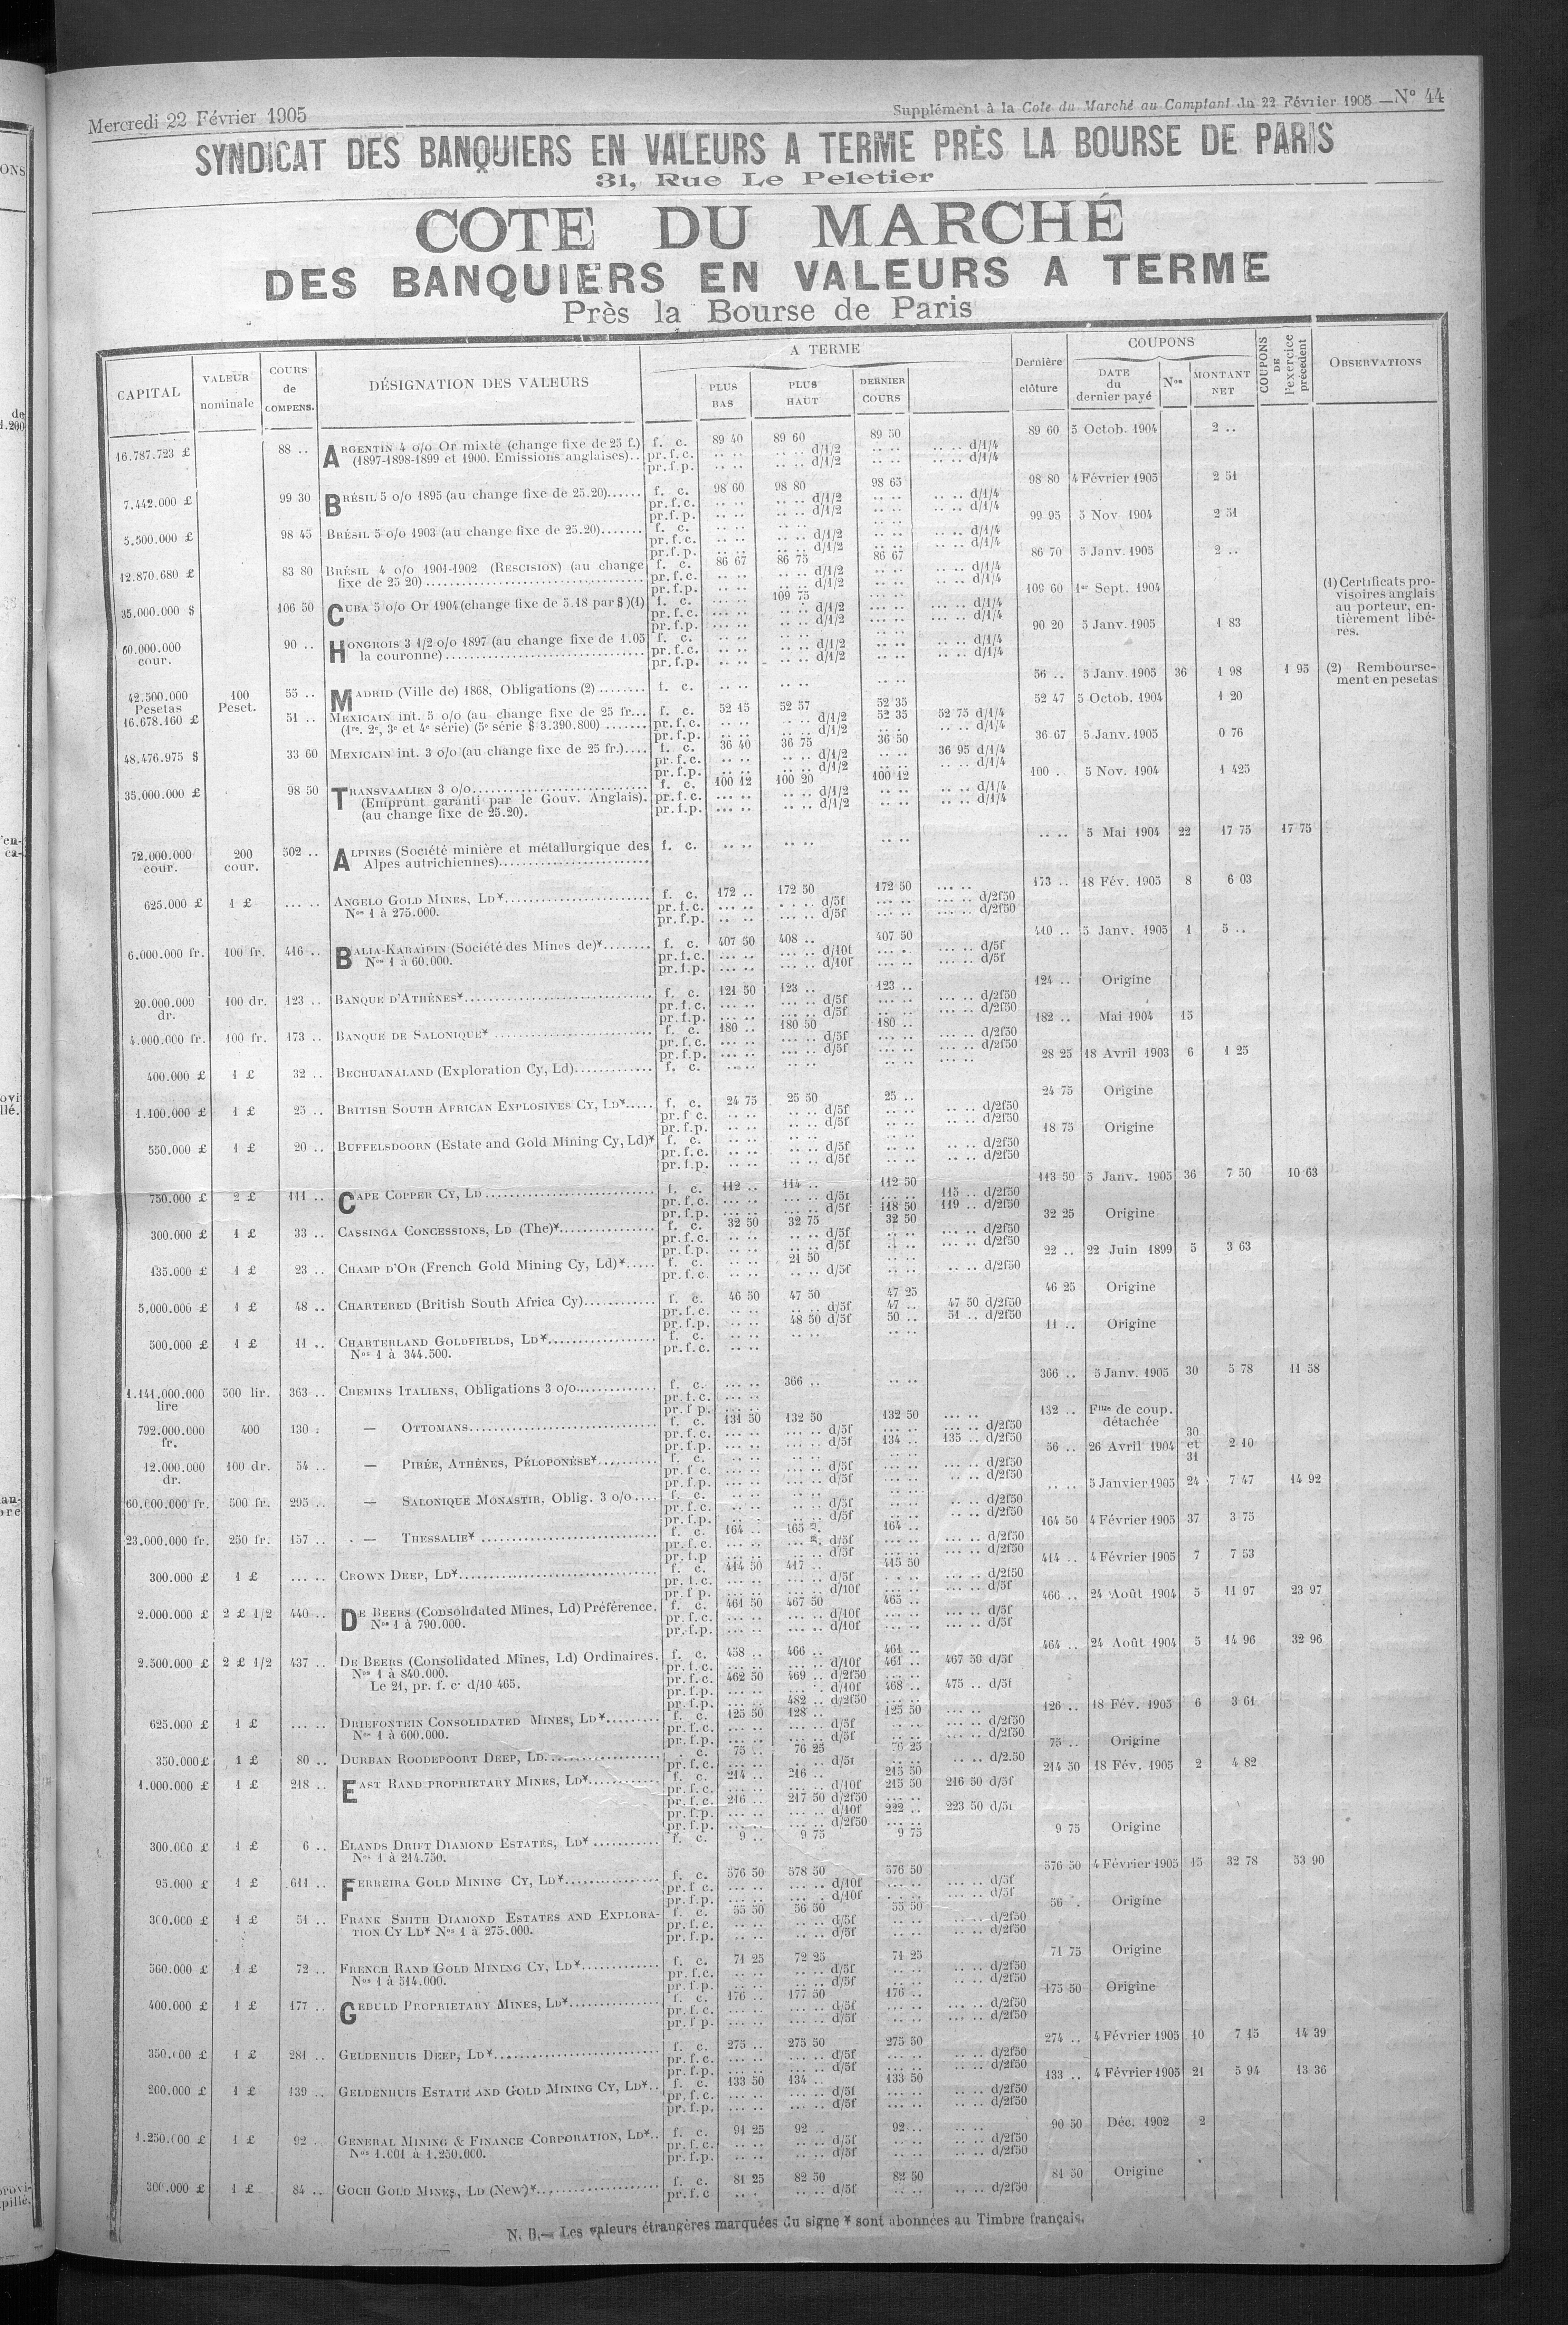 Mercredi 22 Février 1905
Supplément à la Cote du Marché au Comptant du 22 Février 1905 — N° 44
SYNDICAT DES BANQUIERS EN VALEURS A TERME PRÈS LA BOURSE DE PARIS
31, Rue Le Peletier
COTE DU MARCHÉ
DES BANQUIERS EN VALEURS A TERME
Près la Bourse de Paris
CAPITAL | VALEUR nominale | COURS de COMPENS. | DÉSIGNATION DES VALEURS | A TERME | PLUS BAS | PLUS HAUT | DERNIER COURS | Dernière clôture | COUPONS | DATE du dernier payé | Nos | MONTANT NET | COUPONS DE l'exercice précédent | OBSERVATIONS
16.787.723 £ 88 .. ARGENTIN 4 o/o Or mixte (change fixe de 25 f.) f. c. 89 40 89 60 89 50 89 60 5 Octob. 1904 2 ..
(1897-1898-1899 et 1900. Emissions anglaises).. pr. f. c. .. .. .. .. d/1/2 .. .. .. .. d/1/4
pr. f. p. .. .. .. .. d/1/2 .. .. .. .. d/1/4
7.442.000 £ 99 30 BRÉSIL 5 o/o 1895 (au change fixe de 25.20)...... f. c. 98 60 98 80 98 65 98 80 4 Février 1905 2 51
pr. f. c. .. .. .. .. d/1/2 .. .. .. .. d/1/4
pr. f. p. .. .. .. .. d/1/2 .. .. .. .. d/1/4
5.500.000 £ 98 45 BRÉSIL 5 o/o 1903 (au change fixe de 25.20)....... f. c. .. .. .. .. .. .. 99 95 5 Nov 1904 2 51
pr. f. c. .. .. .. .. d/1/2 .. .. .. .. d/1/4
pr. f. p. .. .. .. .. d/1/2 .. .. .. .. d/1/4
12.870.680 £ 83 80 BRÉSIL 4 o/o 1901-1902 (RESCISION) (au change f. c. 86 67 86 75 86 67 86 70 5 Janv. 1905 2 ..
fixe de 25 20) pr. f. c. .. .. .. .. d/1/2 .. .. .. .. d/1/4
pr. f. p. .. .. .. .. d/1/2 .. .. .. .. d/1/4
35.000.000 $ 106 50 CUBA 5 o/o Or 1904 (change fixe de 5.18 par $)(1) f. c. .. .. 109 75 .. .. 109 60 1er Sept. 1904
pr. f. c. .. .. .. .. d/1/2 .. .. .. .. d/1/4
pr. f. p. .. .. .. .. d/1/2 .. .. .. .. d/1/4
(1) Certificats pro-
visoires anglais
au porteur, en-
tièrement libé-
rés.
60.000.000 cour. 90 .. HONGROIS 3 1/2 o/o 1897 (au change fixe de 1.05 f. c. .. .. .. .. .. .. 90 20 5 Janv. 1905 1 83
la couronne) pr. f. c. .. .. .. .. d/1/2 .. .. .. .. d/1/4
pr. f. p. .. .. .. .. d/1/2 .. .. .. .. d/1/4
42.500.000 Pesetas 100 Peset. 55 .. MADRID (Ville de) 1868, Obligations (2) ........ f. c. .. .. .. .. .. .. 56 .. 5 Janv. 1905 36 1 98 1 95
(2) Rembourse-
ment en pesetas
16.678.160 £ 51 .. MEXICAIN int. 5 o/o (au change fixe de 25 fr... f. c. 52 45 52 57 52 35 52 47 5 Octob. 1904 1 20
(1re, 2e, 3e et 4e série) (5e série $ 3.390.800) ....... pr. f. c. .. .. .. .. d/1/2 52 35 52 75 d/1/4
pr. f. p. .. .. .. .. d/1/2 .. .. .. .. d/1/4
48.476.975 $ 33 60 MEXICAIN int. 3 o/o (au change fixe de 25 fr.).... f. c. 36 40 36 75 36 50 36 67 5 Janv. 1905 0 76
pr. f. c. .. .. .. .. d/1/2 .. .. 36 95 d/1/4
pr. f. p. .. .. .. .. d/1/2 .. .. .. .. d/1/4
35.000.000 £ 98 50 TRANSVAALIEN 3 o/o f. c. 100 12 100 20 100 12 100 .. 5 Nov. 1904 1 425
(Emprunt garanti par le Gouv. Anglais). pr. f. c. .. .. .. .. d/1/2 .. .. .. .. d/1/4
(au change fixe de 25.20). pr. f. p. .. .. .. .. d/1/2 .. .. .. .. d/1/4
72.000.000 cour. 200 cour. 502 .. ALPINES (Société minière et métallurgique des f. c. .. .. .. .. .. .. .. .. 5 Mai 1904 22 17 75 17 75
Alpes autrichiennes)
625.000 £ 1 £ .. .. ANGELO GOLD MINES, LD* f. c. 172 .. 172 50 172 50 173 .. 18 Fév. 1905 8 6 03
Nos 1 à 275.000. pr. f. c. .. .. .. .. d/5f .. .. .. .. d/2f50
pr. f. p. .. .. .. .. d/5f .. .. .. .. d/2f50
6.000.000 fr. 100 fr. 416 .. BALIA-KARAÏDIN (Société des Mines de)* f. c. 407 50 408 .. 407 50 410 .. 5 Janv. 1905 1 5 ..
Nos 1 à 60.000. pr. f. c. .. .. .. .. d/10f .. .. .. .. d/5f
pr. f. p. .. .. .. .. d/10f .. .. .. .. d/5f
20.000.000 dr. 100 dr. 123 .. BANQUE D'ATHÈNES* f. c. 121 50 123 .. 123 .. 124 .. Origine
pr. f. c. .. .. .. .. d/5f .. .. .. .. d/2f50
pr. f. p. .. .. .. .. d/5f .. .. .. .. d/2f50
4.000.000 fr. 100 fr. 173 .. BANQUE DE SALONIQUE* f. c. 180 .. 180 50 180 .. 182 .. Mai 1904 15
pr. f. c. .. .. .. .. d/5f .. .. .. .. d/2f50
pr. f. p. .. .. .. .. d/5f .. .. .. .. d/2f50
400.000 £ 1 £ 32 .. BECHUANALAND (Exploration Cy, Ld) f. c. .. .. .. .. .. .. 28 25 18 Avril 1903 6 1 25
1.100.000 £ 1 £ 25 .. BRITISH SOUTH AFRICAN EXPLOSIVES CY, LD* f. c. 24 75 25 50 25 .. 24 75 Origine
pr. f. c. .. .. .. .. d/5f .. .. .. .. d/2f50
pr. f. p. .. .. .. .. d/5f .. .. .. .. d/2f50
550.000 £ 1 £ 20 .. BUFFELSDOORN (Estate and Gold Mining Cy, Ld)* f. c. .. .. .. .. .. .. 18 75 Origine
pr. f. c. .. .. .. .. d/5f .. .. .. .. d/2f50
pr. f. p. .. .. .. .. d/5f .. .. .. .. d/2f50
750.000 £ 2 £ 111 .. CAPE COPPER CY, LD f. c. 112 .. 114 .. 112 50 113 50 5 Janv. 1905 36 7 50 10 63
pr. f. c. .. .. .. .. d/5f .. .. 115 .. d/2f50
pr. f. p. .. .. .. .. d/5f 118 50 119 .. d/2f50
300.000 £ 1 £ 33 .. CASSINGA CONCESSIONS, LD (The)* f. c. 32 50 32 75 32 50 32 25 Origine
pr. f. c. .. .. .. .. d/5f .. .. .. .. d/2f50
pr. f. p. .. .. .. .. d/5f .. .. .. .. d/2f50
135.000 £ 1 £ 23 .. CHAMP D'OR (French Gold Mining Cy, Ld)* f. c. .. .. 21 50 .. .. 22 .. 22 Juin 1899 5 3 63
pr. f. c. .. .. .. .. d/5f .. .. .. .. d/2f50
5.000.000 £ 1 £ 48 .. CHARTERED (British South Africa Cy) f. c. 46 50 47 50 47 25 46 25 Origine
pr. f. c. .. .. .. .. d/5f 47 .. 47 50 d/2f50
pr. f. p. .. .. 48 50 d/5f 50 .. 51 .. d/2f50
500.000 £ 1 £ 11 .. CHARTERLAND GOLDFIELDS, LD* f. c. .. .. .. .. .. .. 11 .. Origine
Nos 1 à 344.500. pr. f. c. .. ..
1.141.000.000 lire 500 lir. 363 .. CHEMINS ITALIENS, Obligations 3 o/o f. c. .. .. 366 .. .. .. 366 .. 5 Janv. 1905 30 5 78 11 58
pr. f. c. .. ..
pr. f. p. .. ..
792.000.000 fr. 400 130 . — OTTOMANS f. c. 131 50 132 50 132 50 132 .. Flle de coup. détachée
pr. f. c. .. .. .. .. d/5f .. .. .. .. d/2f50
pr. f. p. .. .. .. .. d/5f 134 .. 135 .. d/2f50
12.000.000 dr. 100 dr. 54 .. — PIRÉE, ATHÈNES, PÉLOPONÈSE* f. c. .. .. .. .. .. .. 56 .. 26 Avril 1904 30 et 31 2 10
pr. f. c. .. .. .. .. d/5f .. .. .. .. d/2f50
pr. f. p. .. .. .. .. d/5f .. .. .. .. d/2f50
60.000.000 fr. 500 fr. 295 .. — SALONIQUE MONASTIR, Oblig. 3 o/o f. c. .. .. .. .. .. .. .. .. 5 Janvier 1905 24 7 47 14 92
pr. f. c. .. .. .. .. d/5f .. .. .. .. d/2f50
pr. f. p. .. .. .. .. d/5f .. .. .. .. d/2f50
23.000.000 fr. 250 fr. 157 .. — THESSALIE* f. c. 164 .. 165 164 .. 164 50 4 Février 1905 37 3 75
pr. f. c. .. .. .. d/5f .. .. .. .. d/2f50
pr. f. p .. .. .. .. d/5f .. .. .. .. d/2f50
300.000 £ 1 £ .. .. CROWN DEEP, LD* f. c. 414 50 417 .. 415 50 414 .. 4 Février 1905 7 7 53
pr. f. c. .. .. .. .. d/5f .. .. .. .. d/2f50
pr. f. p. .. .. .. .. d/10f .. .. .. .. d/5f
2.000.000 £ 2 £ 1/2 440 .. DE BEERS (Consolidated Mines, Ld) Préférence. f. c. 461 50 467 50 465 .. 466 .. 24 Août 1904 5 11 97 23 97
Nos 1 à 790.000. pr. f. c. .. .. .. .. d/10f .. .. .. .. d/5f
pr. f. p. .. .. .. .. d/10f .. .. .. .. d/5f
2.500.000 £ 2 £ 1/2 437 .. DE BEERS (Consolidated Mines, Ld) Ordinaires. f. c. 458 .. 466 .. 461 .. 464 .. 24 Août 1904 5 14 96 32 96
Nos 1 à 840.000. pr. f. c. .. .. .. .. d/10f 461 .. 467 50 d/5f
Le 21, pr. f. c. d/10 465. pr. f. c. 462 50 469 .. d/2f50 .. ..
pr. f. p. .. .. .. .. d/10f 468 .. 475 .. d/5f
pr. f. p. .. .. 482 .. d/2f50 .. ..
625.000 £ 1 £ .. .. DRIEFONTEIN CONSOLIDATED MINES, LD* f. c. 125 50 128 .. 125 50 126 .. 18 Fév. 1905 6 3 61
Nos 1 à 600.000. pr. f. c. .. .. .. .. d/5f .. .. .. .. d/2f50
pr. f. p. .. .. .. .. d/5f .. .. .. .. d/2f50
350.000 £ 1 £ 80 .. DURBAN ROODEPOORT DEEP, LD. . c. 75 .. 76 25 76 25 75 .. Origine
pr. f. c. .. .. .. d/5f .. .. .. .. d/2.50
1.000.000 £ 1 £ 218 .. EAST RAND PROPRIETARY MINES, LD* f. c. 214 .. 216 .. 215 50 214 50 18 Fév. 1905 2 4 82
pr. f. c. .. .. .. .. d/10f 215 50 216 50 d/5f
pr. f. c. 216 .. 217 50 d/2f50 .. ..
pr. f. p. .. .. .. .. d/10f 222 .. 223 50 d/5f
pr. f. p. .. .. .. .. d/2f50 .. ..
300.000 £ 1 £ 6 .. ELANDS DRIFT DIAMOND ESTATES, LD* f. c. 9 .. 9 75 9 75 9 75 Origine
Nos 1 à 214.750.
95.000 £ 1 £ 611 .. FERREIRA GOLD MINING CY, LD* f. c. 576 50 578 50 576 50 576 50 4 Février 1905 15 32 78 53 90
pr. f. c. .. .. .. .. d/10f .. .. .. .. d/5f
pr. f. p. .. .. .. .. d/10f .. .. .. .. d/5f
300.000 £ 1 £ 51 .. FRANK SMITH DIAMOND ESTATES AND EXPLORA- f. c. 55 50 56 50 55 50 56 . Origine
TION CY LD* Nos 1 à 275.000. pr. f. c. .. .. .. .. d/5f .. .. .. .. d/2f50
pr. f. p. .. .. .. .. d/5f .. .. .. .. d/2f50
560.000 £ 1 £ 72 .. FRENCH RAND GOLD MINING CY, LD* f. c. 71 25 72 25 71 25 71 75 Origine
Nos 1 à 514.000. pr. f. c. .. .. .. .. d/5f .. .. .. .. d/2f50
pr. f. p. .. .. .. .. d/5f .. .. .. .. d/2f50
400.000 £ 1 £ 177 .. GEDULD PROPRIETARY MINES, LD* f. c. 176 .. 177 50 176 .. 175 50 Origine
pr. f. c. .. .. .. .. d/5f .. .. .. .. d/2f50
pr. f. p. .. .. .. .. d/5f .. .. .. .. d/2f50
350.000 £ 1 £ 281 .. GELDENHUIS DEEP, LD* f. c. 275 .. 275 50 275 50 274 .. 4 Février 1905 10 7 15 14 39
pr. f. c. .. .. .. .. d/5f .. .. .. .. d/2f50
pr. f. p. .. .. .. .. d/5f .. .. .. .. d/2f50
200.000 £ 1 £ 139 .. GELDENHUIS ESTATE AND GOLD MINING CY, LD* f. c. 133 50 134 .. 133 50 133 .. 4 Février 1905 21 5 94 13 36
pr. f. c. .. .. .. .. d/5f .. .. .. .. d/2f50
pr. f. p. .. .. .. .. d/5f .. .. .. .. d/2f50
1.250.000 £ 1 £ 92 .. GENERAL MINING & FINANCE CORPORATION, LD* f. c. 91 25 92 .. 92 .. 90 50 Déc. 1902 2
Nos 1.001 à 1.250.000. pr. f. c. .. .. .. .. d/5f .. .. .. .. d/2f50
pr. f. p. .. .. .. .. d/5f .. .. .. .. d/2f50
300.000 £ 1 £ 84 .. GOCH GOLD MINES, LD (New)* f. c. 81 25 82 50 82 50 81 50 Origine
pr. f. c .. . .. .. d/5f .. .. .. .. d/2f50
N. B.— Les valeurs étrangères marquées du signe * sont abonnées au Timbre français.